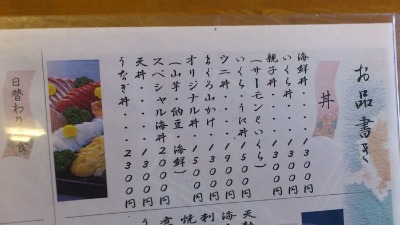 お品書き
丼
海鮮丼・・・1300円
いくら丼・・1300円
親子丼・・・1300円
(サーモンといくら)
いくら・うに丼1500円
ウニ丼・・・1900円
まぐろ山かけ・1300円
オリジナル丼 1500円
(山芋・納豆・海鮮)
スペシャル海丼2000円
天丼・・・・1300円
うなぎ丼・・2300円
日替わり
食